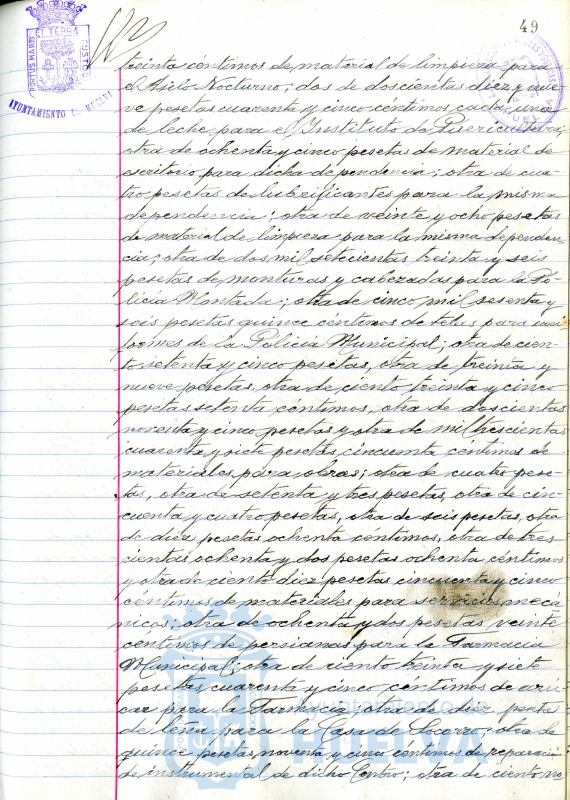 49
PORTUS MARIS ET TERRAE CUSTODIA
AYUNTAMIENTO DE HUELVA
treinta céntimos de material de limpieza para
el Asilo Nocturno; dos de doscientas diez y nue
ve pesetas cuarenta y cinco céntimos cada una
de leche para el Instituto de Puericultura;
otra de ochenta y cinco pesetas de material de
escritorio para dicha dependencia; otra de cua
tro pesetas de lubrificantes para la misma
dependencia; otra de veinte y ocho pesetas
de material de limpieza para la misma dependen
cia; otra de dos mil setecientas treinta y seis
pesetas de monturas y cabezadas para la Po-
licia Montada; otra de cinco mil sesenta y
seis pesetas quince céntimos de telas para uni
formes de la Policia Municipal; otra de cien
to setenta y cinco pesetas, otra de treinta y
nueve pesetas, otra de ciento treinta y cinco
pesetas setenta céntimos, otra de doscientas
noventa y cinco pesetas y otra de mil trescientas
cuarenta y siete pesetas cincuenta centimos de
materiales para obras; otra de cuatro pese
tas, otra de setenta y tres pesetas, otra de cin
cuenta y cuatro pesetas, otra de seis pesetas, otra
de diez pesetas ochenta céntimos, otra de tres
cientas ochenta y dos pesetas ochenta céntimos
y otra de ciento diez pesetas cincuenta y cinco
céntimos de materiales para servicios mecá
nicos; otra de ochenta y dos pesetas veinte
céntimos de persianas para la Farmacia
Municipal; otra de ciento treinta y siete
pesetas cuarenta y cinco céntimos de azu
car para la Farmacia; otra de diez pesetas
de leña para la Casa de Socorro; otra de
quince pesetas noventa y cinco centimos de reparació
de instrumental de dicho Centro; otra de ciento no
Ayuntamiento de
HUELVA